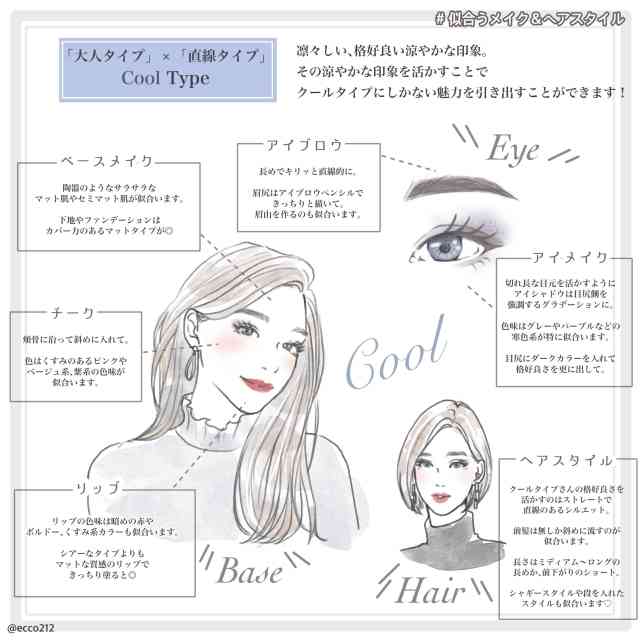 # 似合うメイク＆ヘアスタイル
「大人タイプ」×「直線タイプ」
Cool Type
凛々しい、格好良い涼やかな印象。
その涼やかな印象を活かすことで
クールタイプにしかない魅力を引き出すことができます！
アイブロウ
長めでキリッと直線的に。
眉尻はアイブロウペンシルで
きっちりと描いて。
眉山を作るのも似合います。
Eye
ベースメイク
陶器のようなサラサラな
マット肌やセミマット肌が似合います。
下地やファンデーションは
カバー力のあるマットタイプが◎
アイメイク
切れ長な目元を活かすように
アイシャドウは目尻側を
強調するグラデーションに。
色味はグレーやパープルなどの
寒色系が特に似合います。
目尻にダークカラーを入れて
格好良さを更に出して。
チーク
頬骨に沿って斜めに入れて。
色はくすみのあるピンクや
ベージュ系、葉系の色味が
似合います。
Cool
ヘアスタイル
クールタイプさんの格好良さを
活かすのはストレートで
直線のあるシルエット。
前髪は無しか斜めに流すのが
似合います。
長さはミディアム〜ロングの
長めか、前下がりのショート。
シャギースタイルや段を入れた
スタイルも似合います♡
リップ
リップの色味は暗めの赤や
ボルドー、くすみ系カラーも似合います。
シアーなタイプよりも
マットな質感のリップで
きっちり塗ると◎
Base
Hair
@ecco212